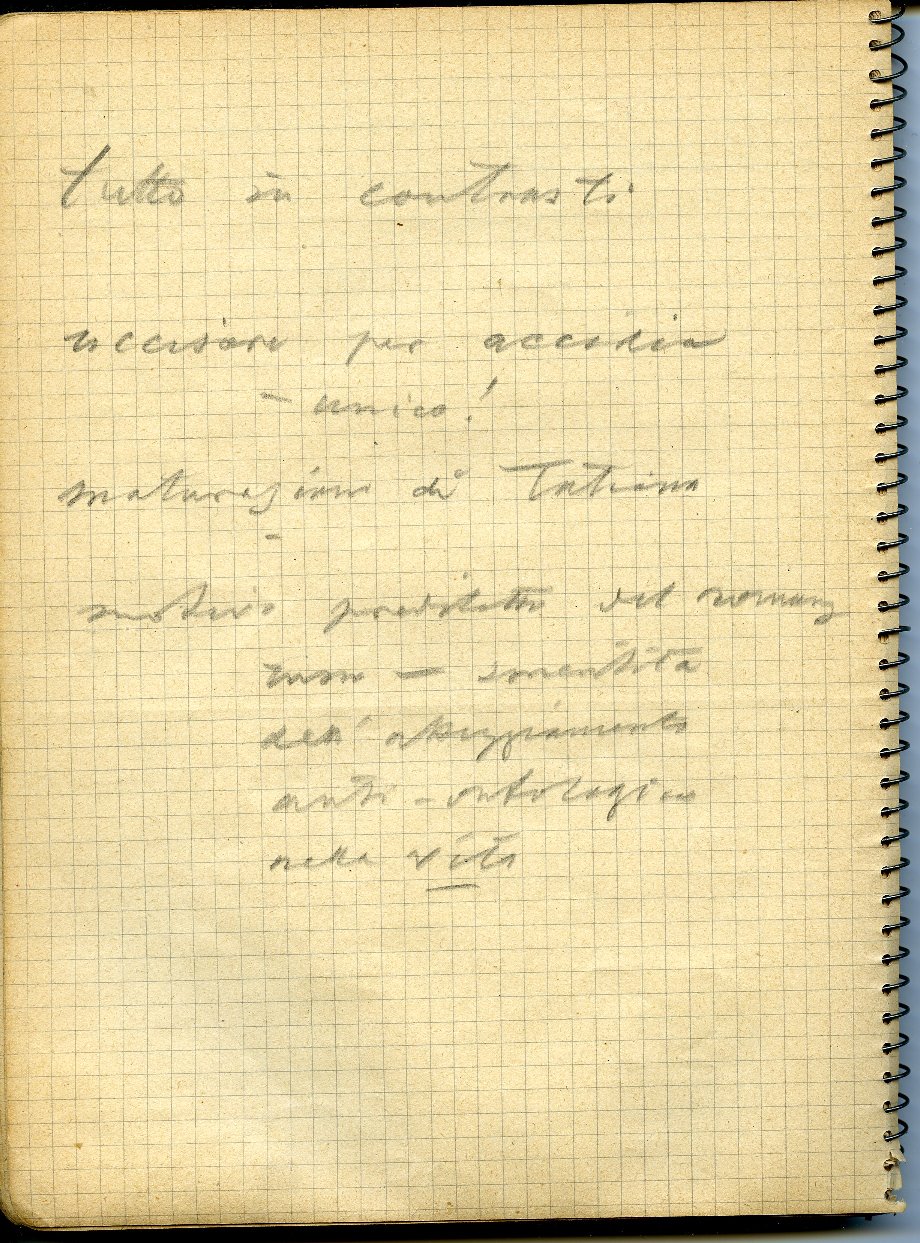 tutto in contrasti
uccisore per accidia
- unico!
maturazione di Tatiana
-
motivo prediletto del romanz
- smentita
dell'atteggiamento
anti-ontologico
nella vita